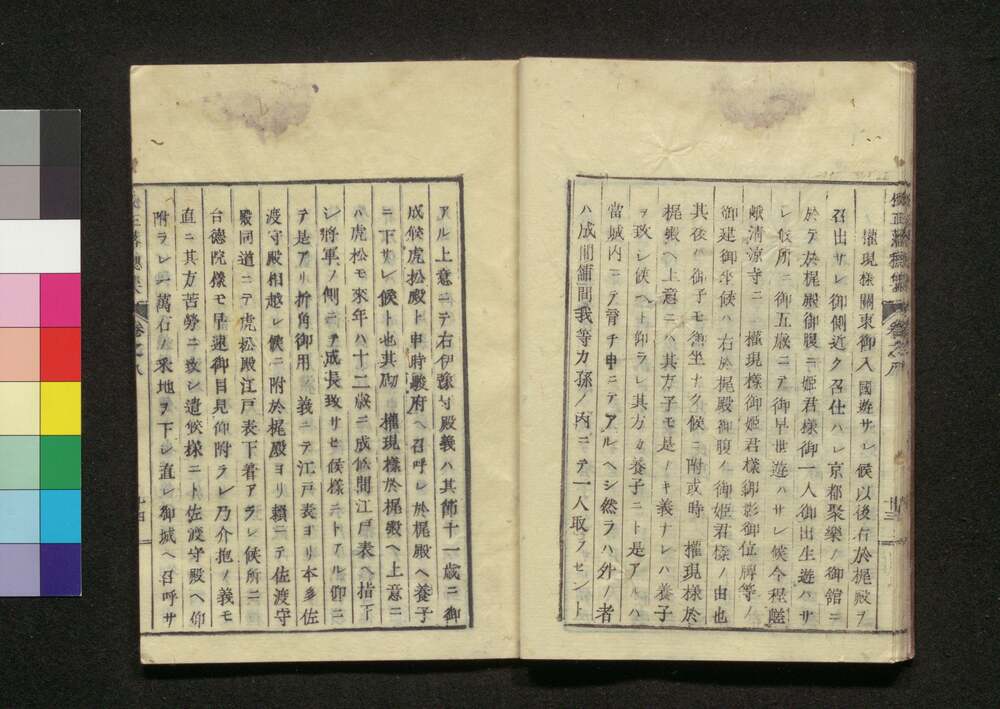 權現樣關東御入國遊サレ候以後右於梶殿ヲ
召出サレ御側近ク召仕ハレ京都聚樂ノ御館ニ
於テ右於梶殿御腹ニ姫君樣御一人御出生遊ハサ
レ候所ニ御五歳ニテ御早世遊ハサレ候今程嵯
峨清涼寺ニ權現樣御姫君樣御影御位牌等ノ
御建御坐候ハ右於梶殿御腹ノ御姫君樣ノ由也
其後ハ御子モ御坐ナク候ニ附或時權現樣於
梶殿ヘ上意ニハ其方子モ是ナキ義ナレハ養子
ヲ致シ候ヘト仰ラレ其方カ養子ニト是アルハ
當城内ニテ脊チ申ニテアルヘシ然ラハ外ノ者
ハ成間舗間我等カ孫ノ内ニテ一人取ラセント
アル上意ニテ右伊豫守殿義ハ其節十一歳ニ御
成候虎松殿ト申時駿府ヘ召呼レ於梶殿ヘ養子
ニ下サレ候ト也其砌權現樣於梶殿ヘ上意ニ
ハ虎松モ來年ハ十二歳ニ成候間江戸表ヘ指下
シ將軍ノ側ニテ成長致サセ候樣ニトアル仰ニ
テ是アリ折角御用義ニテ江戸表ヨリ本多佐
渡守殿相越レ候ニ附於梶殿ヨリ頼ニテ佐渡守
殿同道ニテ虎松殿江戸表下着アラレ候所ニ
台德院樣モ早速御目見仰附ラレ乃介抱ノ義モ
直ニ其方苦勞ニ致シ遣候樣ニト佐渡守殿ヘ仰
附ラレ一萬石ノ采地ヲ下シ直レ御城ヘ召呼サ